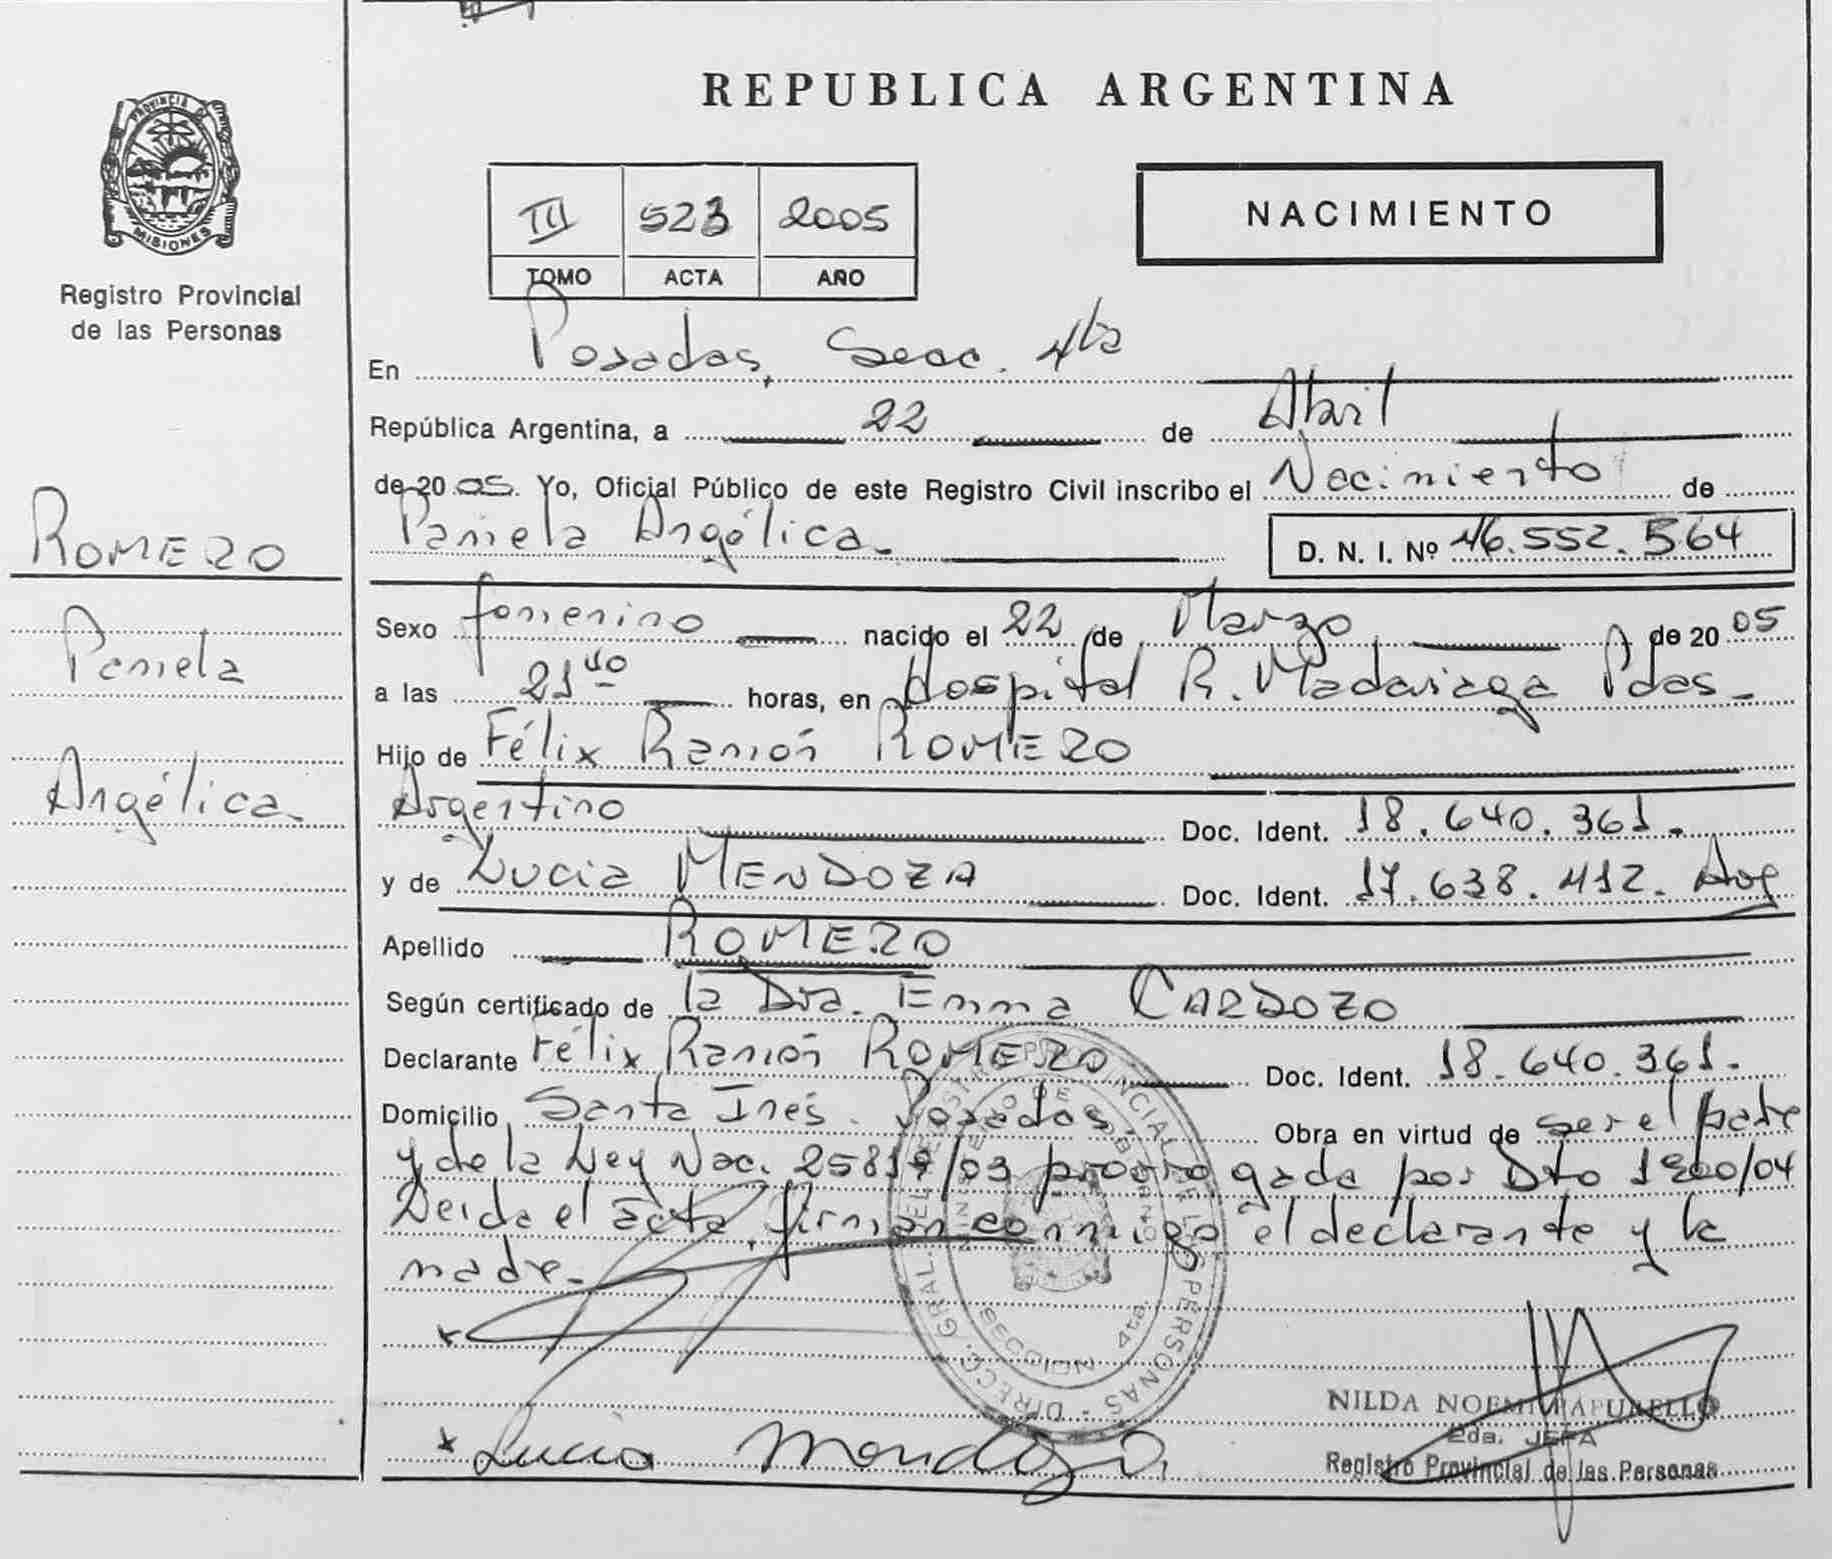 REPUBLICA ARGENTINA
PROVINCIA DE
MISIONES
Registro Provincial
de las Personas
III 523 2005
TOMO ACTA AÑO
NACIMIENTO
En Posadas, Secc. 4ta
República Argentina, a 22 de Abril
de 2005. Yo, Oficial Público de este Registro Civil inscribo el Nacimiento de
Pamela Angélica.
D. N. I. Nº 46.552.564
ROMERO
Pamela
Angélica.
Sexo femenino nacido el 22 de Marzo de 2005
a las 21 40 horas, en Hospital R. Madariaga Pdas.
Hijo de Félix Ramón ROMERO
Argentino Doc. Ident. 18.640.361.
y de Lucia MENDOZA Doc. Ident. 17.638.412. Arg
Apellido ROMERO
Según certificado de la Dra. Emma CARDOZO
Declarante Félix Ramón ROMERO Doc. Ident. 18.640.361.
Domicilio Santa Inés. Posadas. Obra en virtud de ser el padre
y de la Ley Nac. 25819/03 prorrogada por Dto
Leida el acta, firman conmigo el declarante y la
madre.
x
x Lucia Mendoza.
DIRECC. GRAL. DEL REGISTRO PROVINCIAL DE LAS PERSONAS
SECCION 4ta
NILDA NOEMI
2da. JEFA
Registro Provincial de las Personas